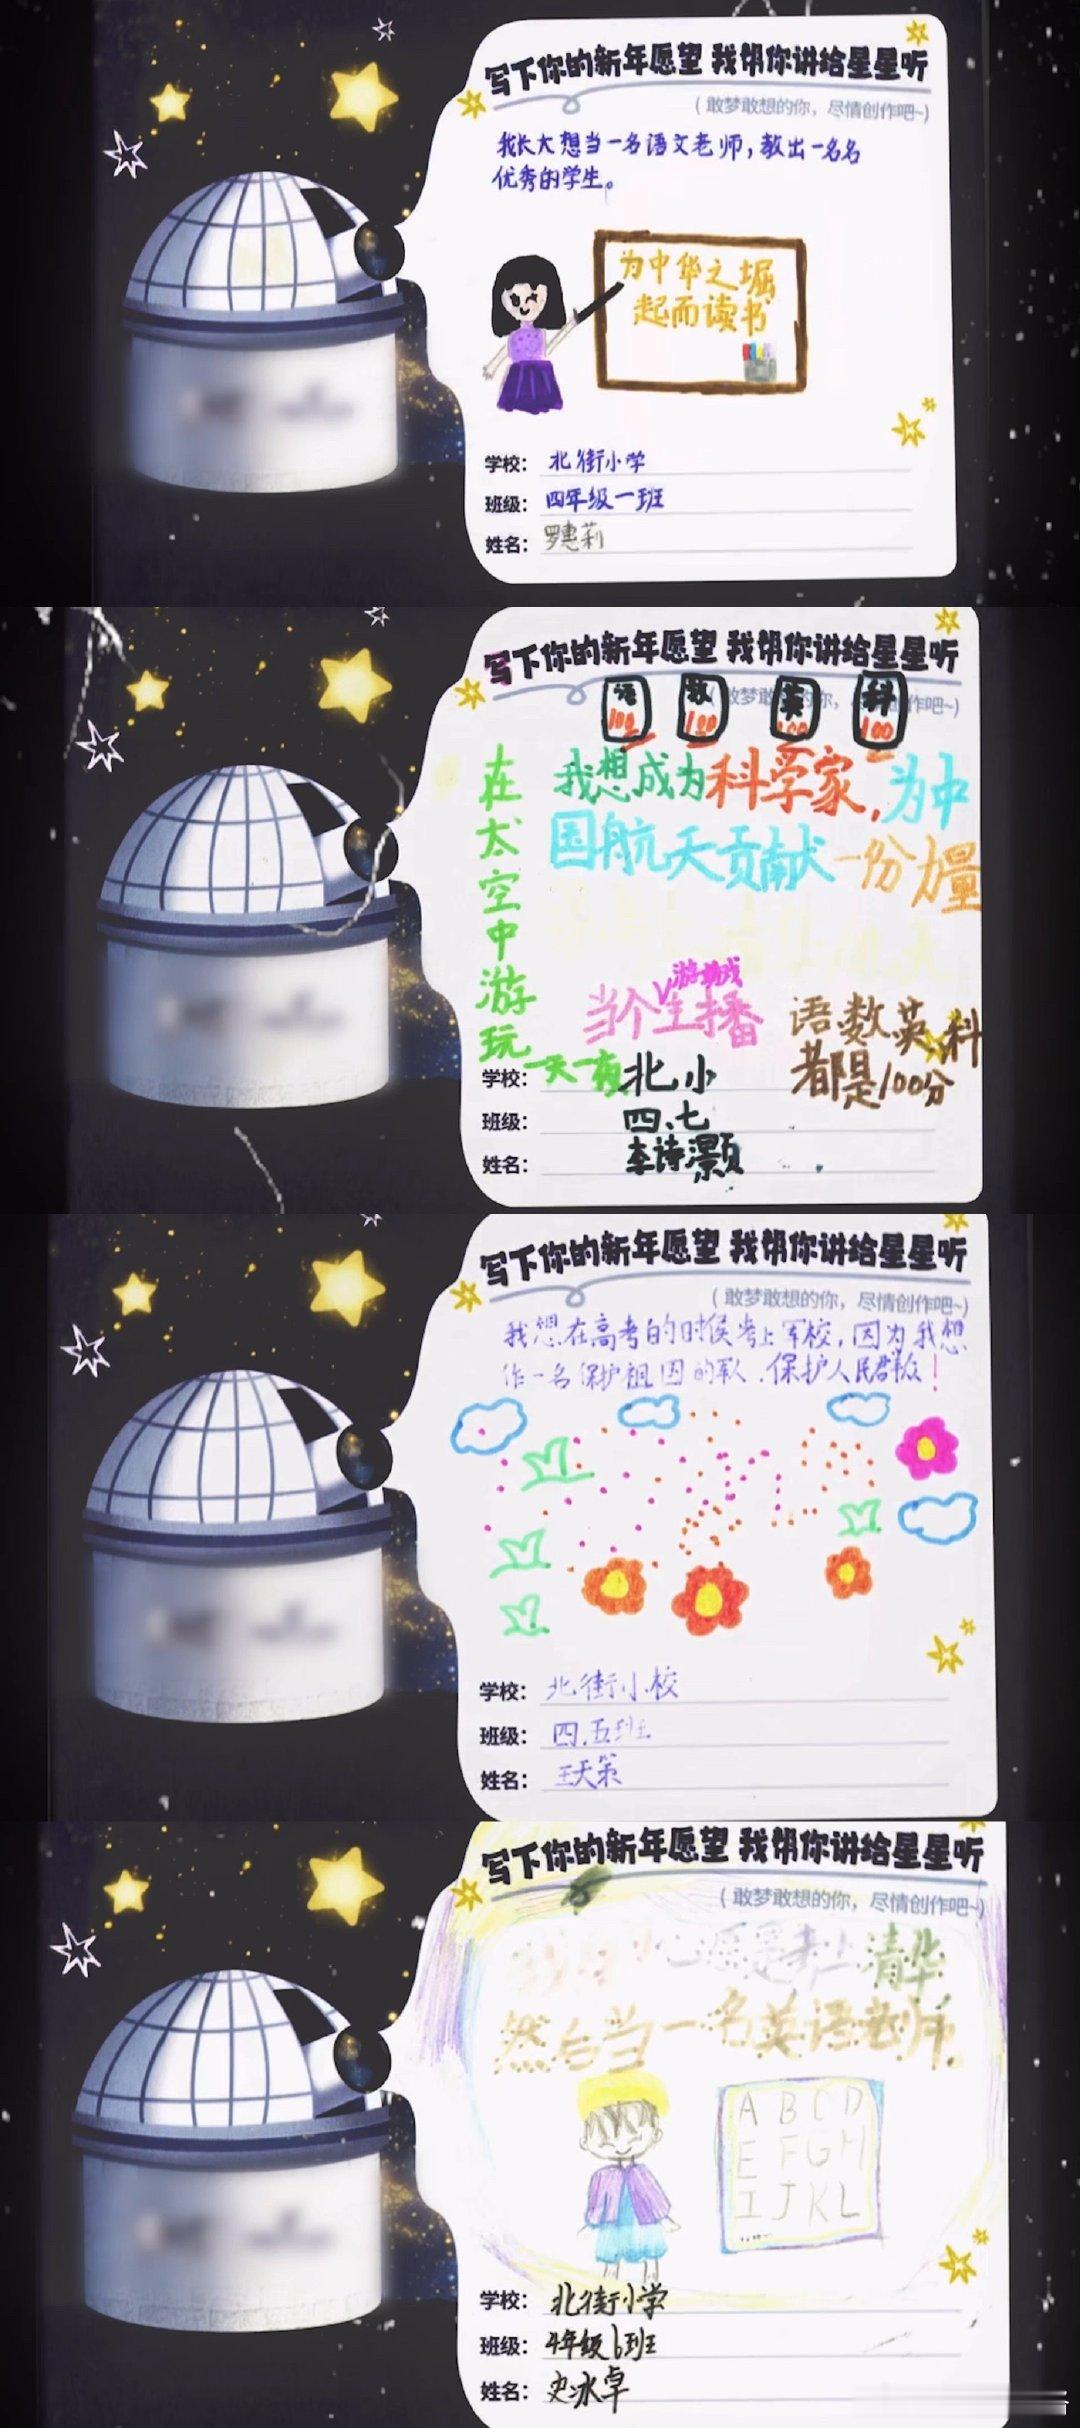 写下你的新年愿望 我帮你讲给星星听
(敢梦敢想的你，尽情创作吧~)
我长大想当一名语文老师，教出一名名
优秀的学生。
为中华之堀
起而读书
学校：北街小学
班级：四年级一班
姓名：罗惠莉
写下你的新年愿望 我帮你讲给星星听
语 数 英 科
100 100 100 100
在太空中游玩一天一夜
我想成为科学家，为中
国航天贡献一份力量
当个游戏主播
语数英科
都是100分
学校：北小
班级：四.七
姓名：李诗灏
写下你的新年愿望 我帮你讲给星星听
(敢梦敢想的你，尽情创作吧~)
我想在高考的时候考上军校，因为我想
作一名保护祖国的军人.保护人民群众！
学校：北街小校
班级：四.五班
姓名：王天策
写下你的新年愿望 我帮你讲给星星听
(敢梦敢想的你，尽情创作吧~)
心愿是考上清华
然后当一名英语老师.
A B C D
E F G H
I J K L
学校：北街小学
班级：4年级6班
姓名：史冰卓